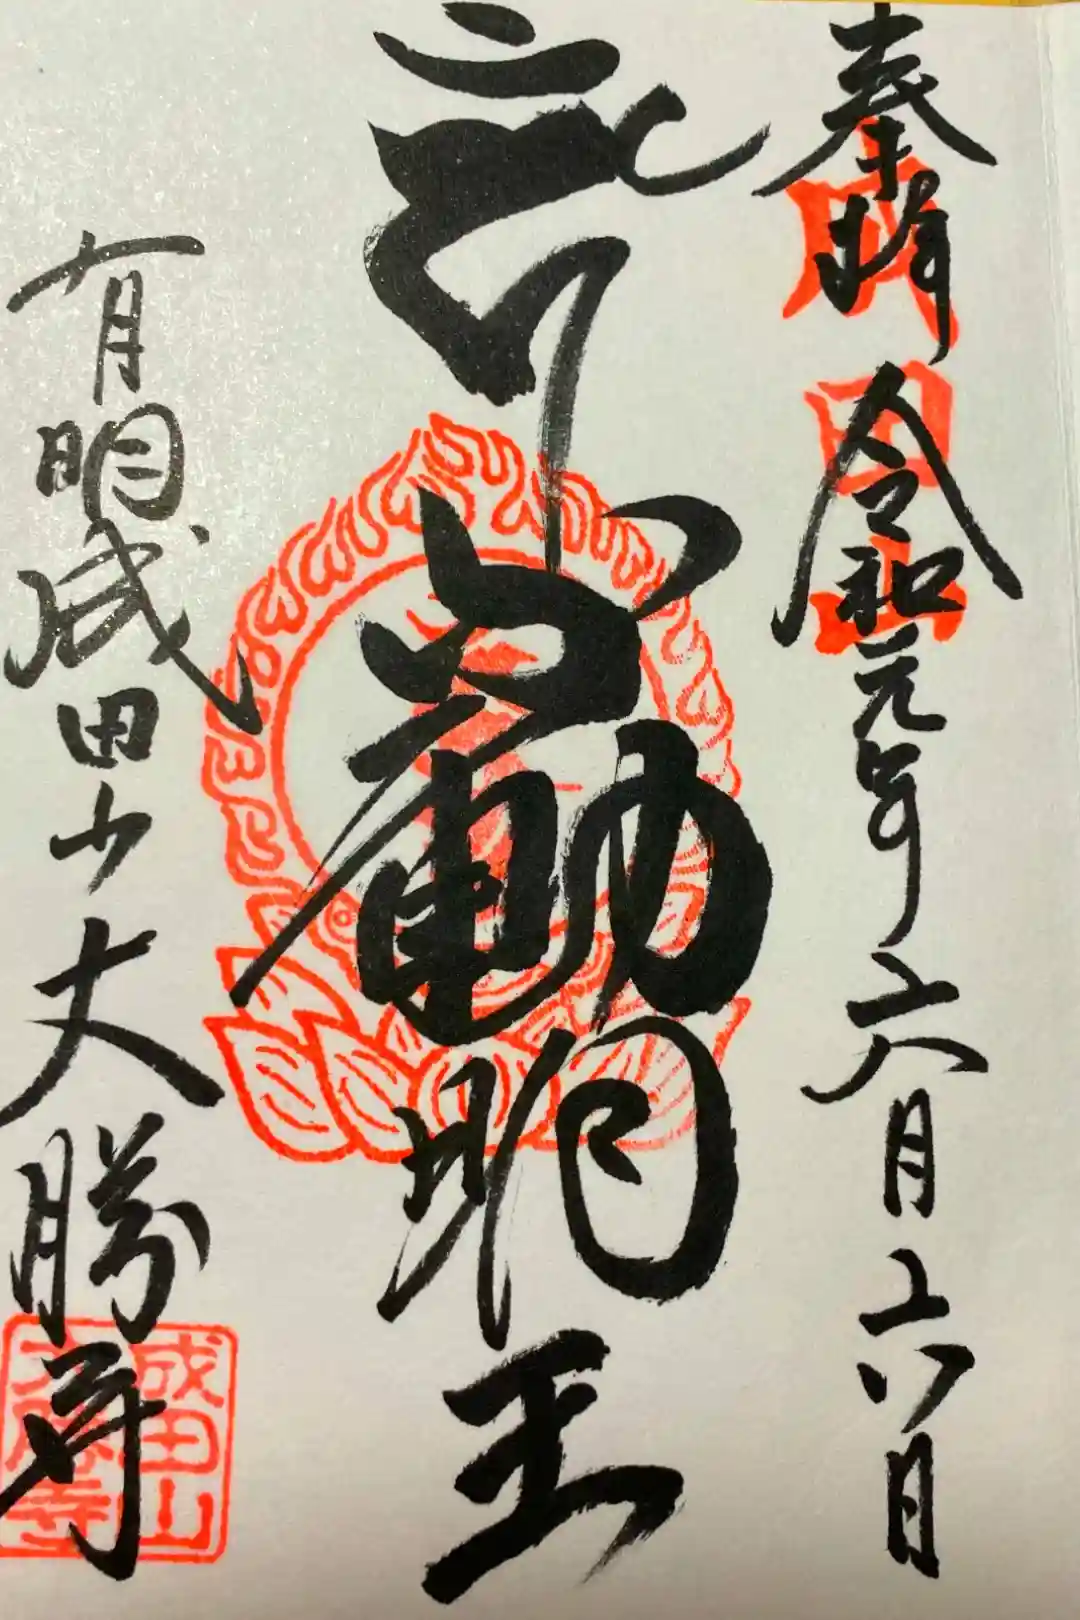 奉拝 令和元年六月六日
成田山
不動明王
有明成田山大勝寺
成田山
大勝寺